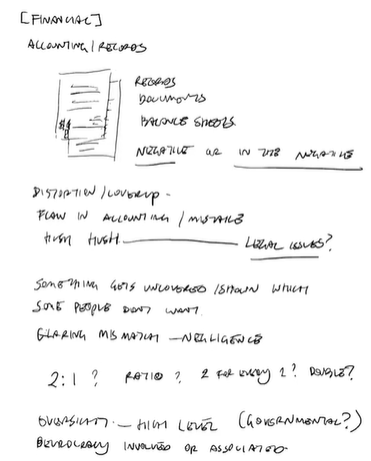 [FINANCIAL]
ACCOUNTING/RECORDS
RECORDS
DOCUMENTS
BALANCE SHEETS.
NEGATIVE OR IN THE NEGATIVE
DISTORTION/COVERUP -
FLAW IN ACCOUNTING/MISTAKE
HUSH HUSH LEGAL ISSUES?
SOMETHING GETS UNCOVERED/SHOWN WHICH
SOME PEOPLE DON'T WANT.
GLARING MISMATCH - NEGLIGENCE
2:1 ? RATIO? 2 FOR EVERY 1? DOUBLE?
OVERSIGHT - HIGH LEVEL (GOVERNMENTAL?)
BEUROCRACY INVOLVED OR ASSOCIATED.